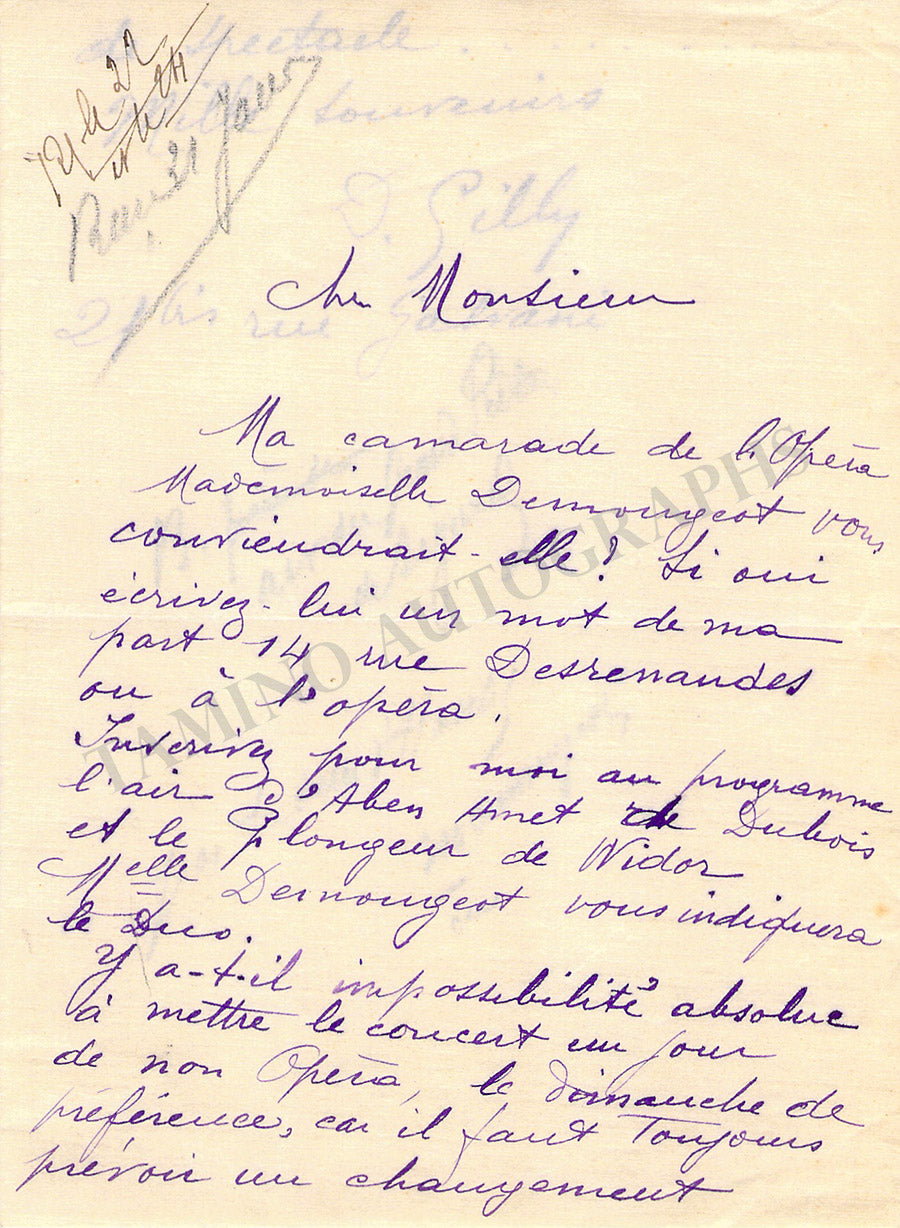 Cher Monsieur
Ma camarade de l'Opéra
Mademoiselle Demougeot vous
conviendrait-elle? Si oui
écrivez-lui un mot de ma
part 14 rue Desrenaudes
ou à l'opéra.
Inscrivez pour moi au programme
l'air d'Aben Hmet de Dubois
et le Plongeur de Widor
Melle Demougeot vous indiquera
le Duo.
Y a-t-il impossibilité absolue
à mettre le concert un jour
de non Opéra, le dimanche de
préférence, car il faut Toujours
prévoir un changement
de spectacle . . . . . .
Mille souvenirs
D. Gilly
21 bis rue
TAMINO AUTOGRAPHS